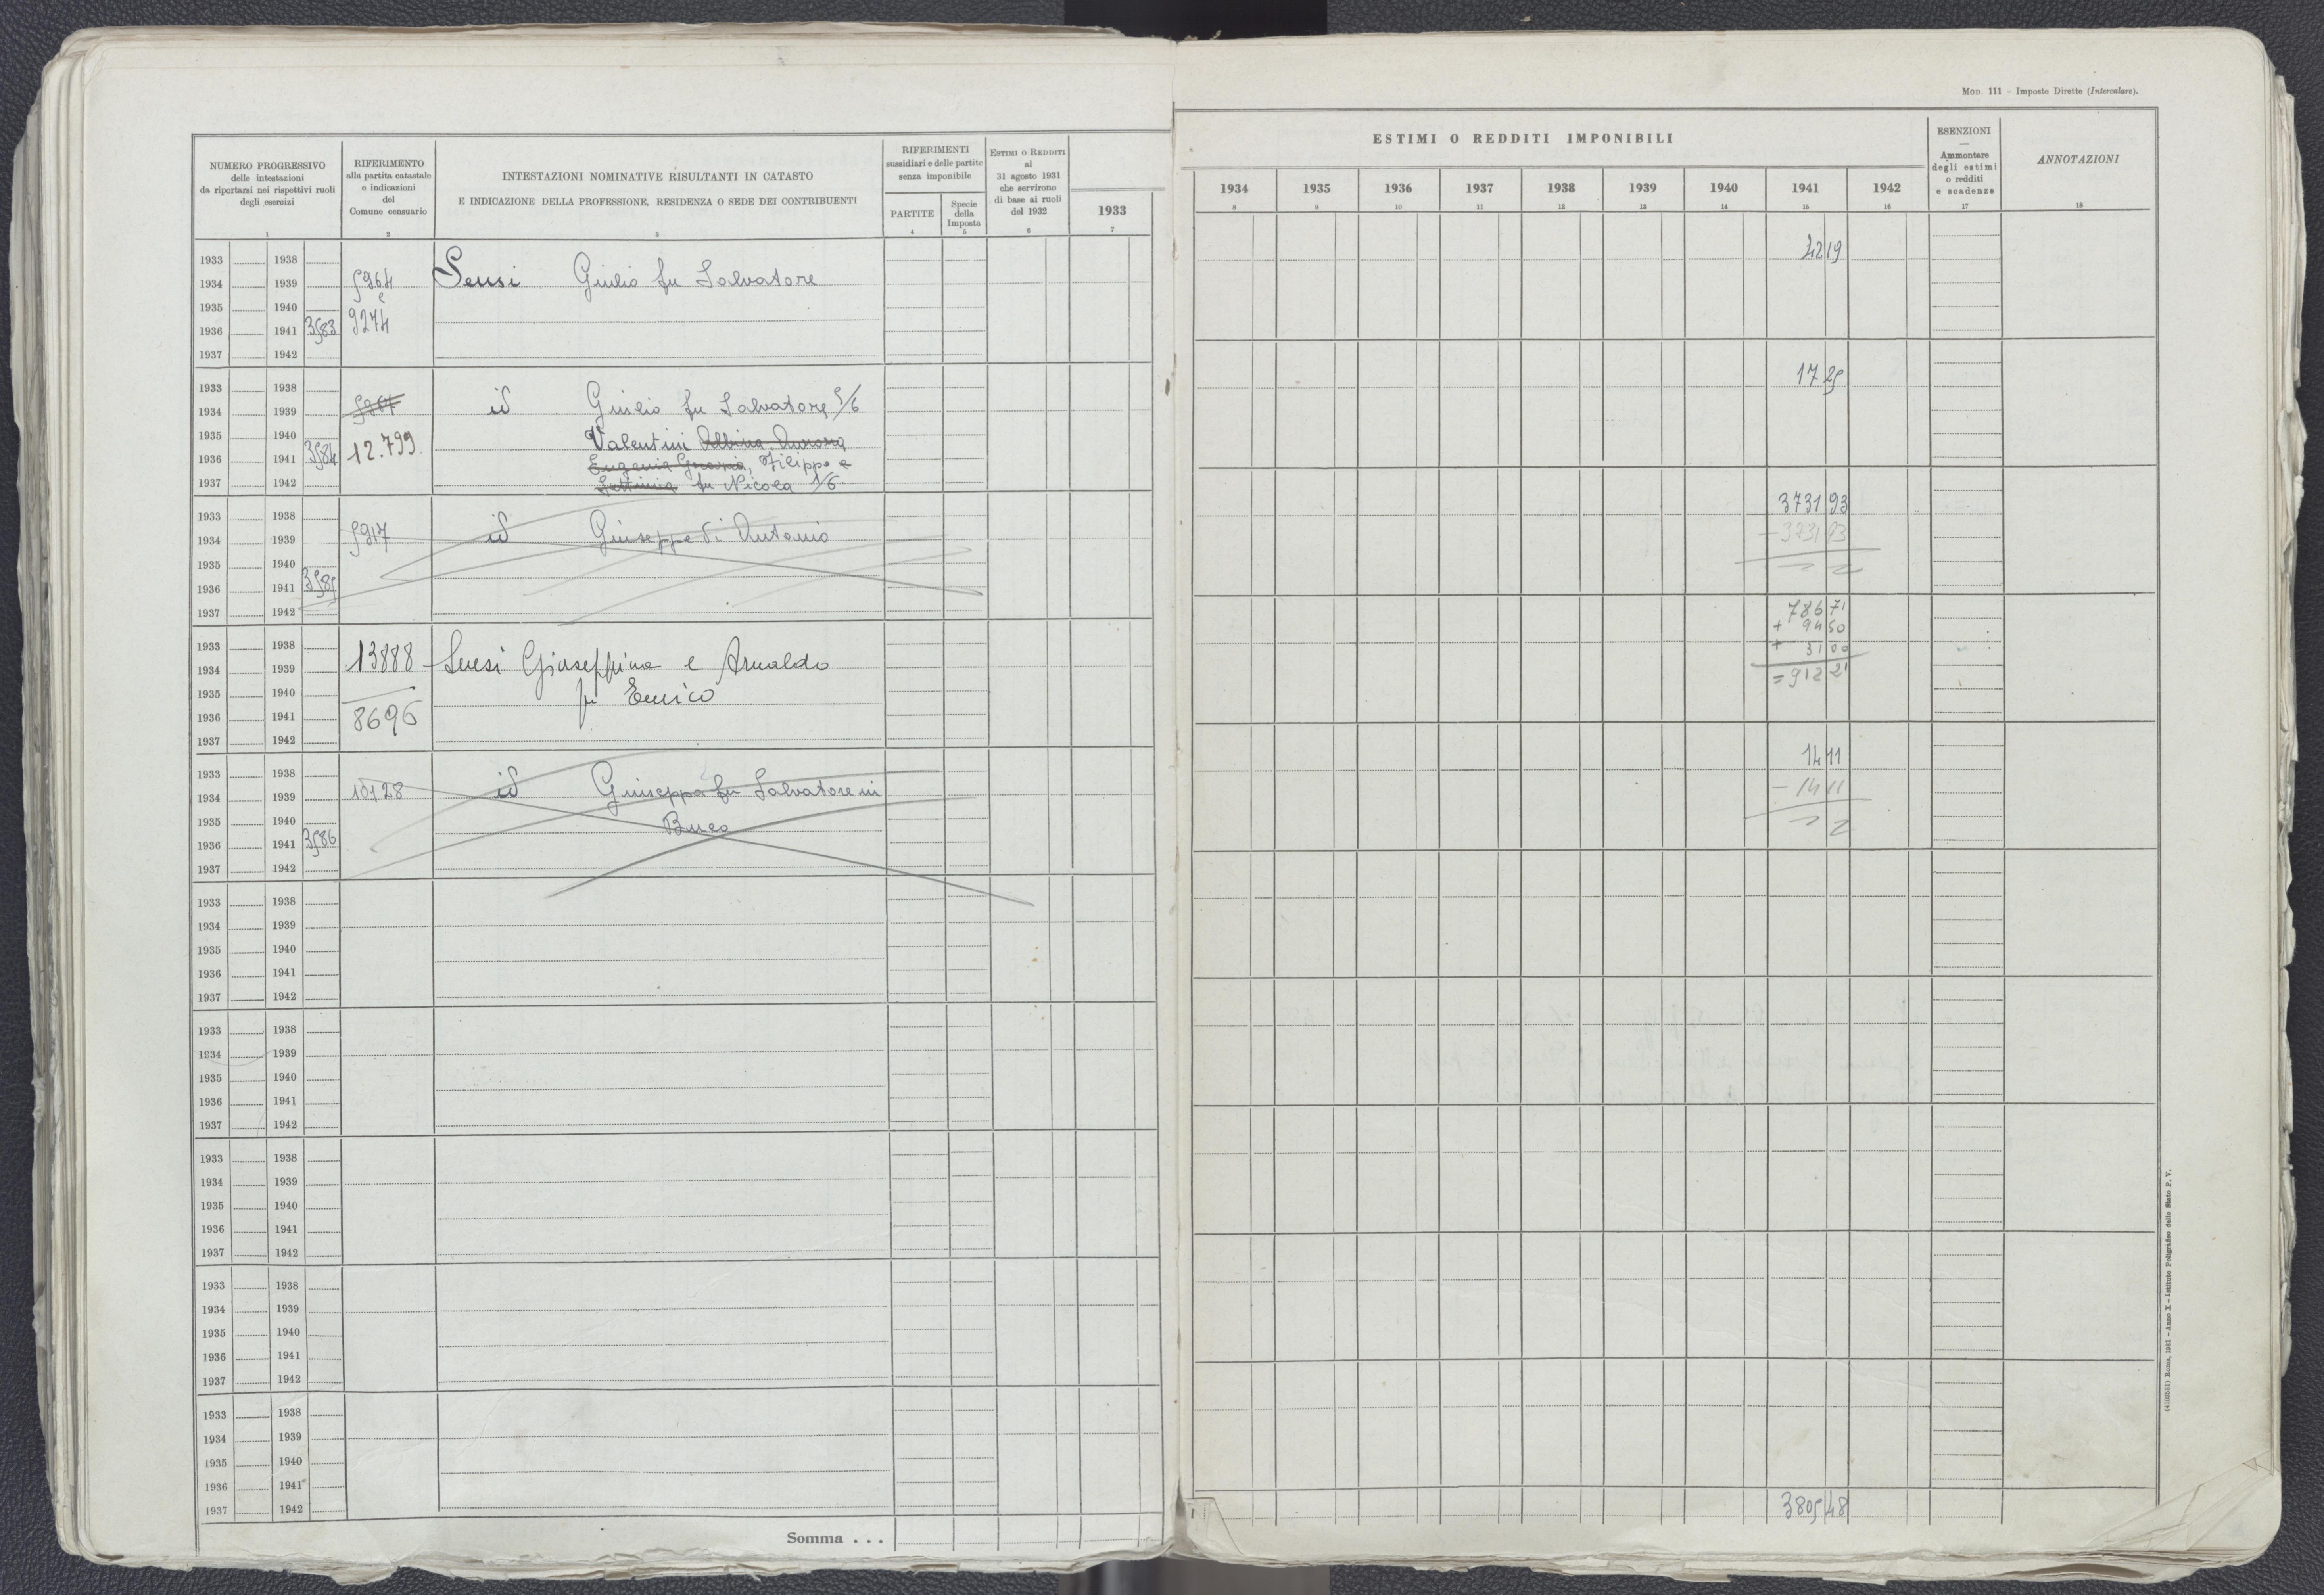 MOD. 111 – Imposte Dirette (Intercalare).
NUMERO PROGRESSIVO
delle intestazioni
da riportarsi nei rispettivi ruoli
degli esercizi
1
RIFERIMENTO
alla partita catastale
e indicazioni
del
Comune censuario
2
INTESTAZIONI NOMINATIVE RISULTANTI IN CATASTO
E INDICAZIONE DELLA PROFESSIONE, RESIDENZA O SEDE DEI CONTRIBUENTI
3
RIFERIMENTI
sussidiari e delle partite
senza imponibile
PARTITE
4
Specie
della
Imposta
5
ESTIMI O REDDITI
al
31 agosto 1931
che servirono
di base ai ruoli
del 1932
6
1933
7
ESTIMI O REDDITI IMPONIBILI
1934 1935 1936 1937 1938 1939 1940 1941 1942
8 9 10 11 12 13 14 15 16
ESENZIONI
—
Ammontare
degli estimi
o redditi
e scadenze
17
ANNOTAZIONI
18
1933 1938
1934 1939 5964 Sensi Giulio fu Salvatore 42 19
1935 1940 e
1936 1941 3583 9274
1937 1942
1933 1938
1934 1939 id Giulio fu Salvatore 5/6 17 25
1935 1940 Valentini Albina, Aurora,
1936 1941 3584 12.799 Eugenia Grazia, Filippo e
1937 1942 Settimia fu Nicola 1/6
1933 1938 3731 93
1934 1939 5917 id Giuseppe di Antonio – 3731 93
1935 1940
1936 1941 3585
1937 1942
1933 1938 786 71
13888 Sensi Giuseppina e Arnaldo + 94 50
1934 1939 + 31 00
1935 1940 fu Enrico = 912 21
1936 1941 8696
1937 1942
1933 1938 14 11
1934 1939 10128 id Giuseppa fu Salvatore in – 14 11
1935 1940 Buco
1936 1941 3586
1937 1942
1933 1938
1934 1939
1935 1940
1936 1941
1937 1942
1933 1938
1934 1939
1935 1940
1936 1941
1937 1942
1933 1938
1934 1939
1935 1940
1936 1941
1937 1942
1933 1938
1934 1939
1935 1940
1936 1941
1937 1942
1933 1938
1934 1939
1935 1940
1936 1941
1937 1942
Somma . . . 3805 48
Roma, 1931 – Anno X – Istituto Poligrafico dello Stato P. V.